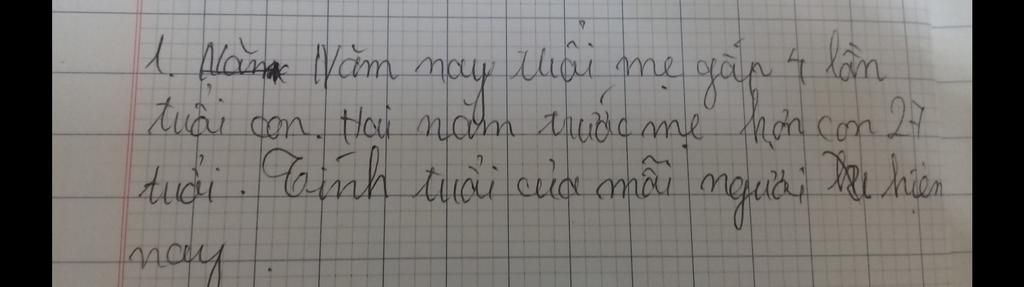 1. Năm nay tuổi mẹ gấp 4 lần
tuổi con. Hai năm trước mẹ hơn con 27
tuổi. Tính tuổi của mỗi người hiện
nay.